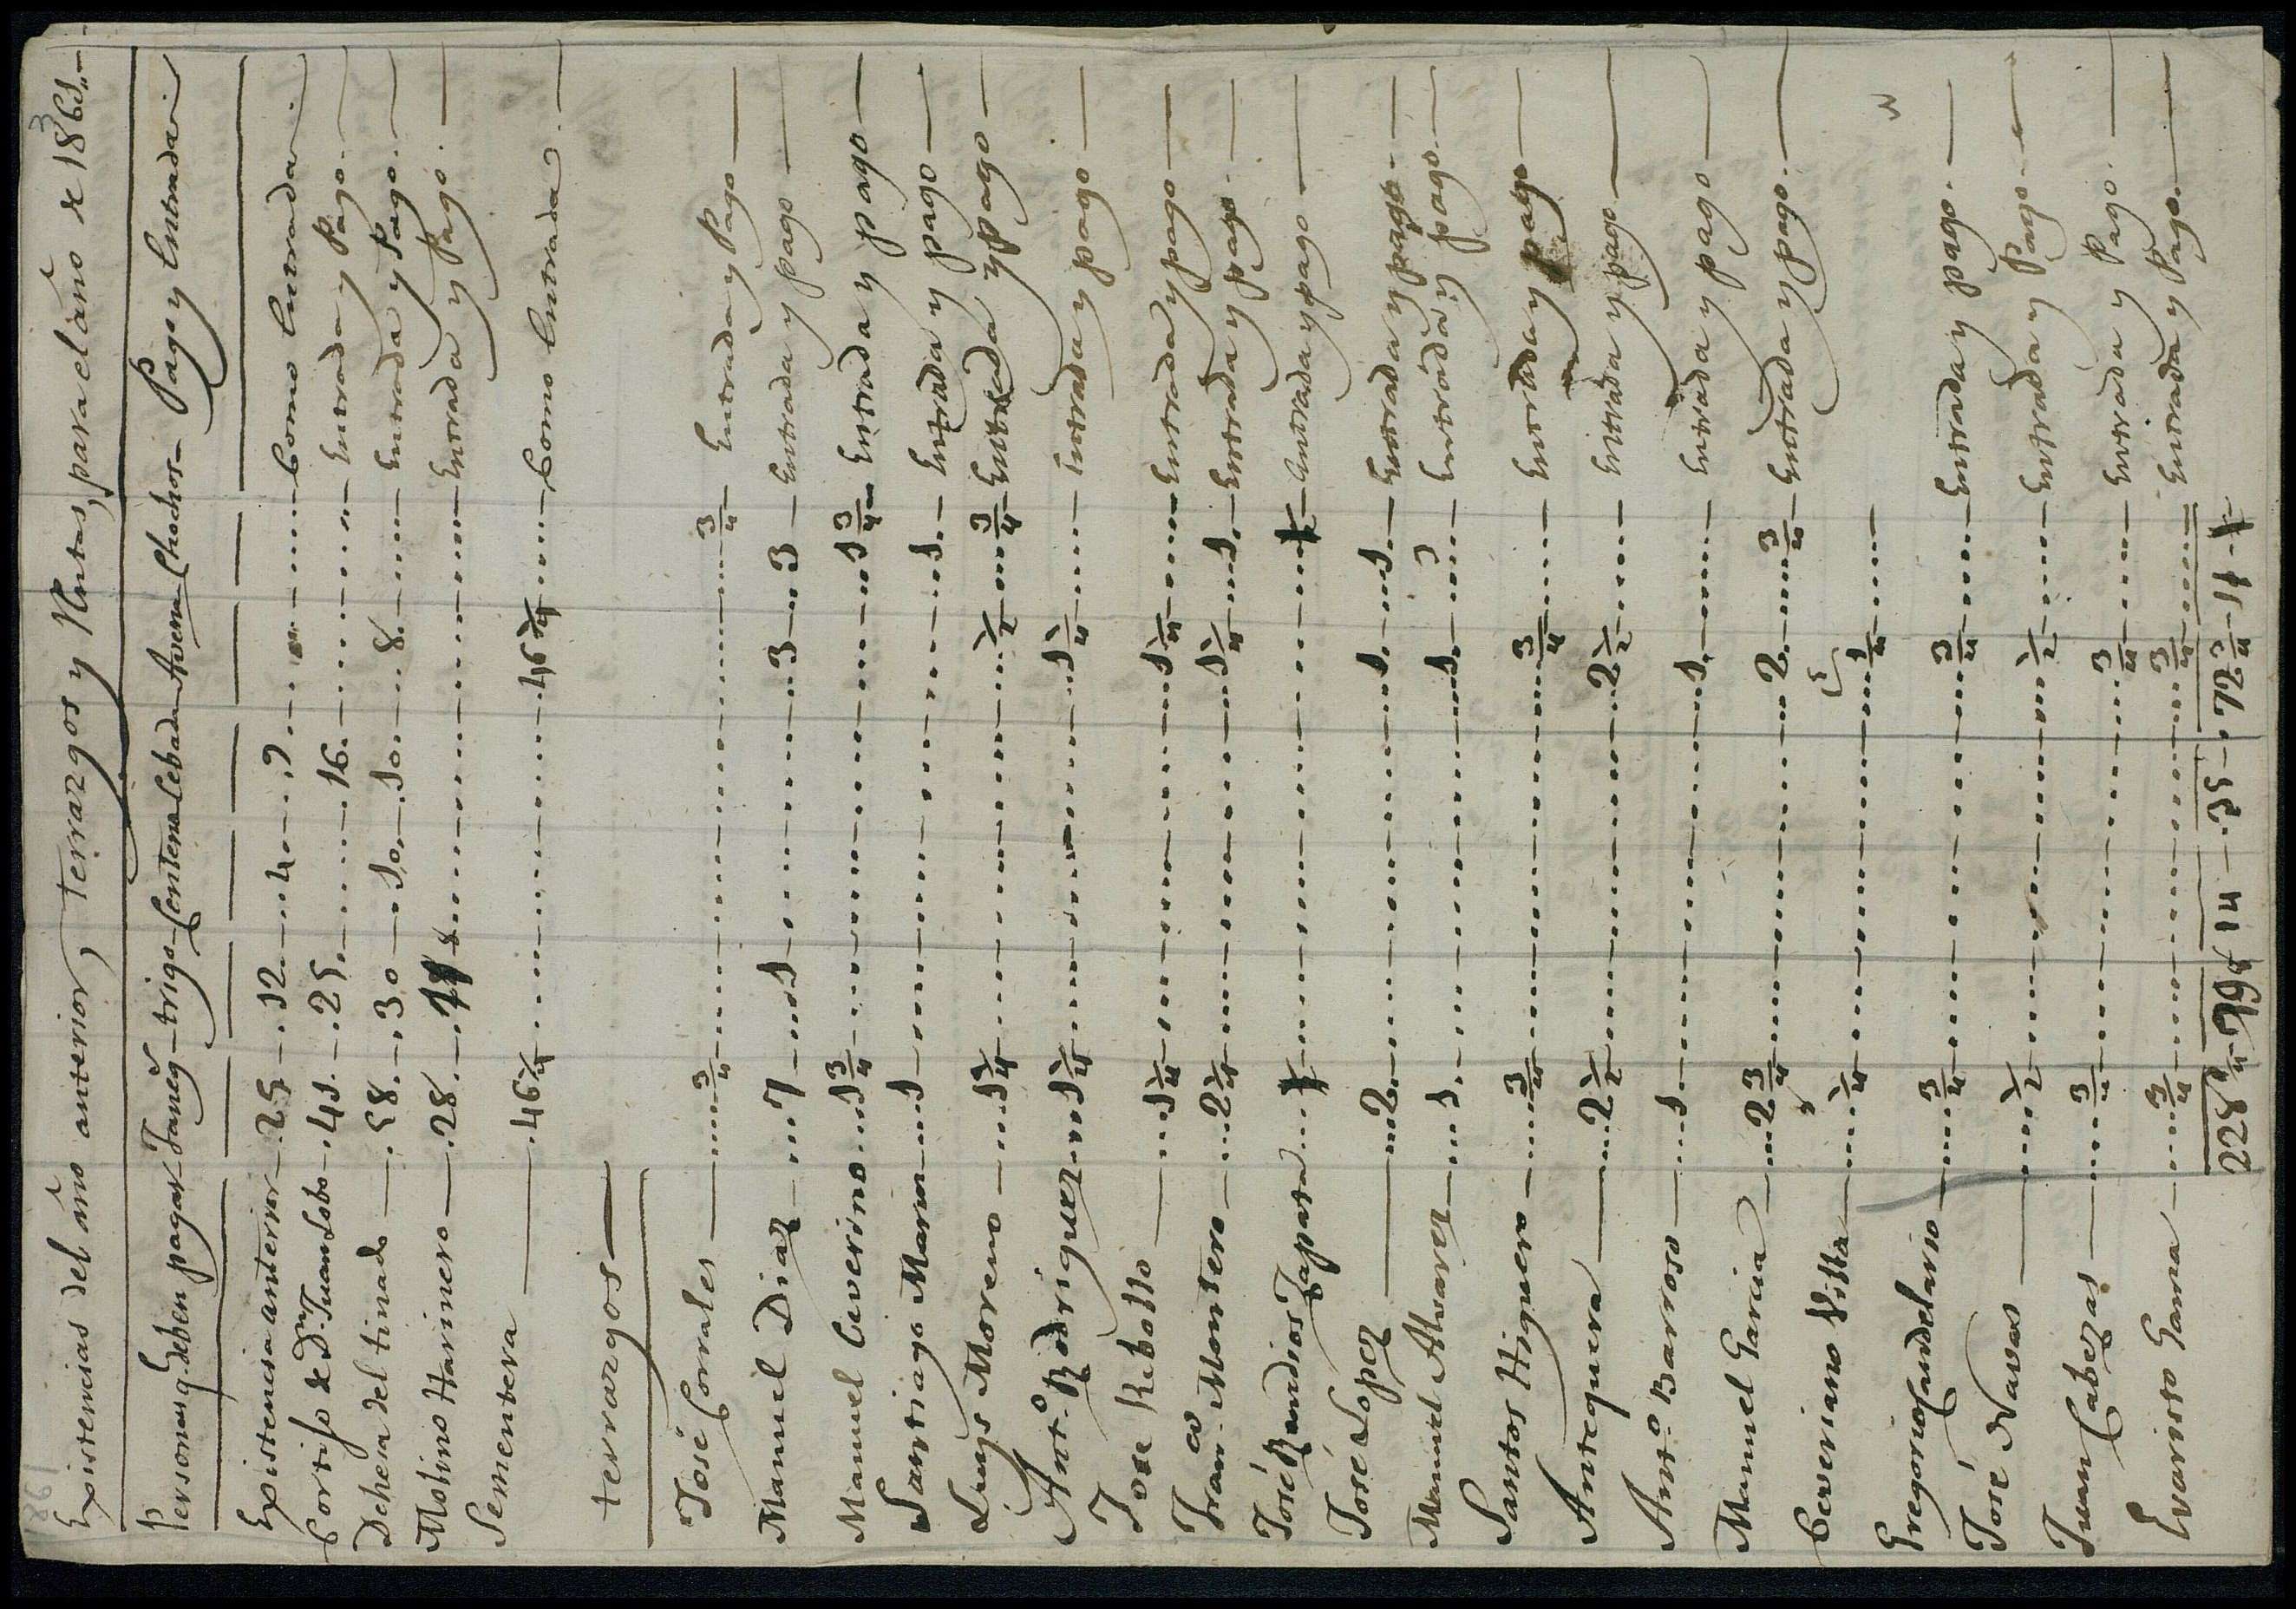 1861
Existencias del año anterior, terrazgos y Rentas, para el año de 1863
Personas q. deben pagar Faneg.s trigo Centeno Cebada Avena Chochos Pago y Entrada
Existencia anterior 25 12 4 9 Como Entrada
Cortijo de D.n Juan Lobo 41 25 16 Entrada y Pago
Dehesa del tinado 58 30 10 10 8 Entrada y Pago
Molino Harinero 28 Entrada y Pago
Sementera 46 1/4 46 1/4 Como Entrada
terrazgos
José Corrales 3/4 3/4 Entrada y Pago
Manuel Diaz 7 1 3 3 Entrada y pago
Manuel Ceverino 1 3/4 1 3/4 Entrada y pago
Santiago Marin 1 1 Entrada y pago
Luys Moreno 1 1/4 1/2 3/4 Entrada y pago
Ant.o Rodriguez 1 1/4 1 1/4 Entrada y pago
Jose Rebollo 1 1/4 1 1/4 Entrada y pago
Fran.co Montero 2 1/4 1 1/4 1 Entrada y pago
José Randios Zapata 1/2 1/2 Entrada y pago
José Lopez 2 1 1 Entrada y pago
Manuel Alvarez 1 1 Entrada y pago
Santos Higuero 3/4 3/4 Entrada y pago
Antequera 2 1/2 2 1/2 Entrada y pago
Ant.o Barroso 1 1 Entrada y pago
Manuel Garcia 2 3/4 2 3/4 Entrada y pago
Ceveriano Villa 1/4 1/4
Gregorio Candelario 3/4 3/4 Entrada y pago
José Navas 1/2 1/2 Entrada y Pago
Juan Cabezas 3/4 3/4 Entrada y Pago
Evaristo Gama 3/4 3/4 Entrada y Pago
14 35 72 3/4 11